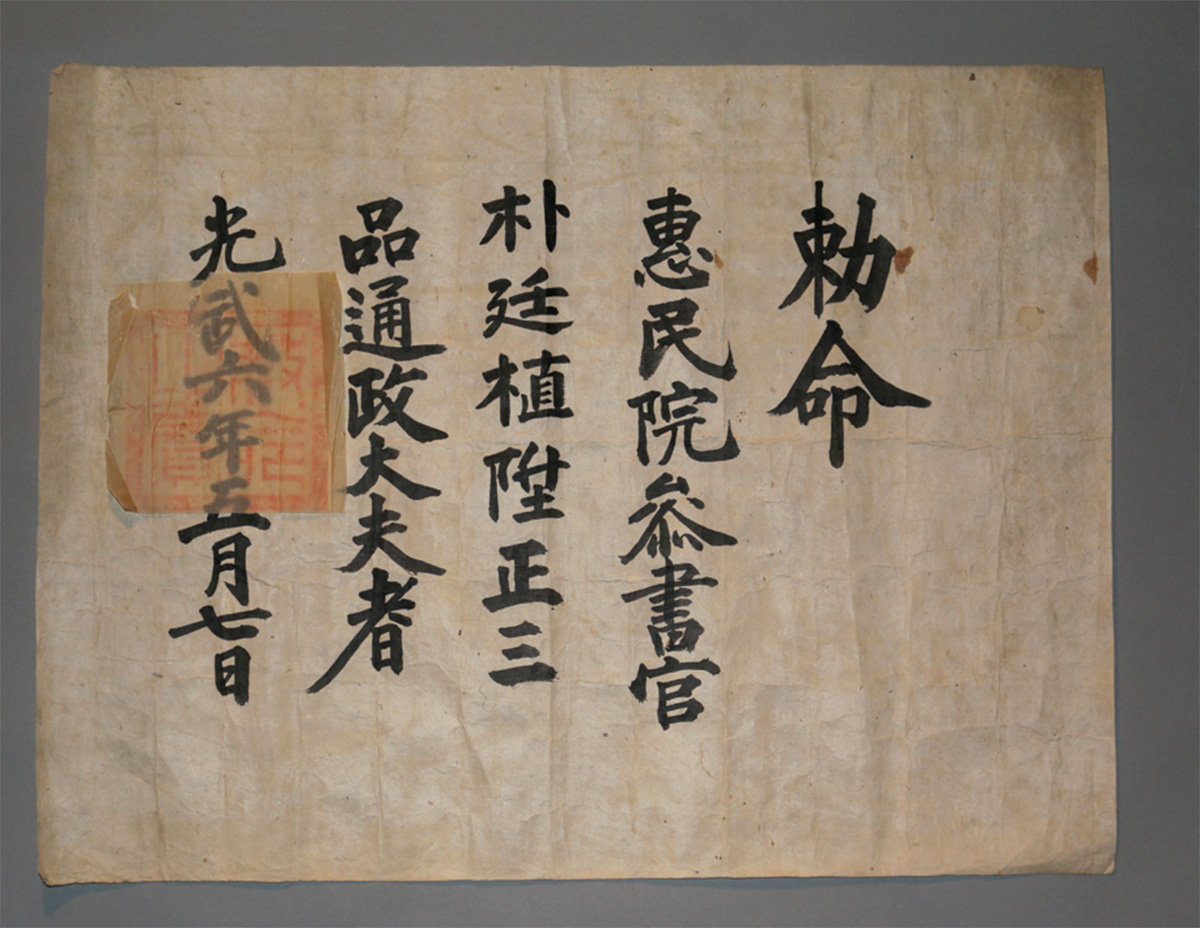 勅命
惠民院叅書官
朴廷植陞正三
品通政大夫者
光武六年五月七日